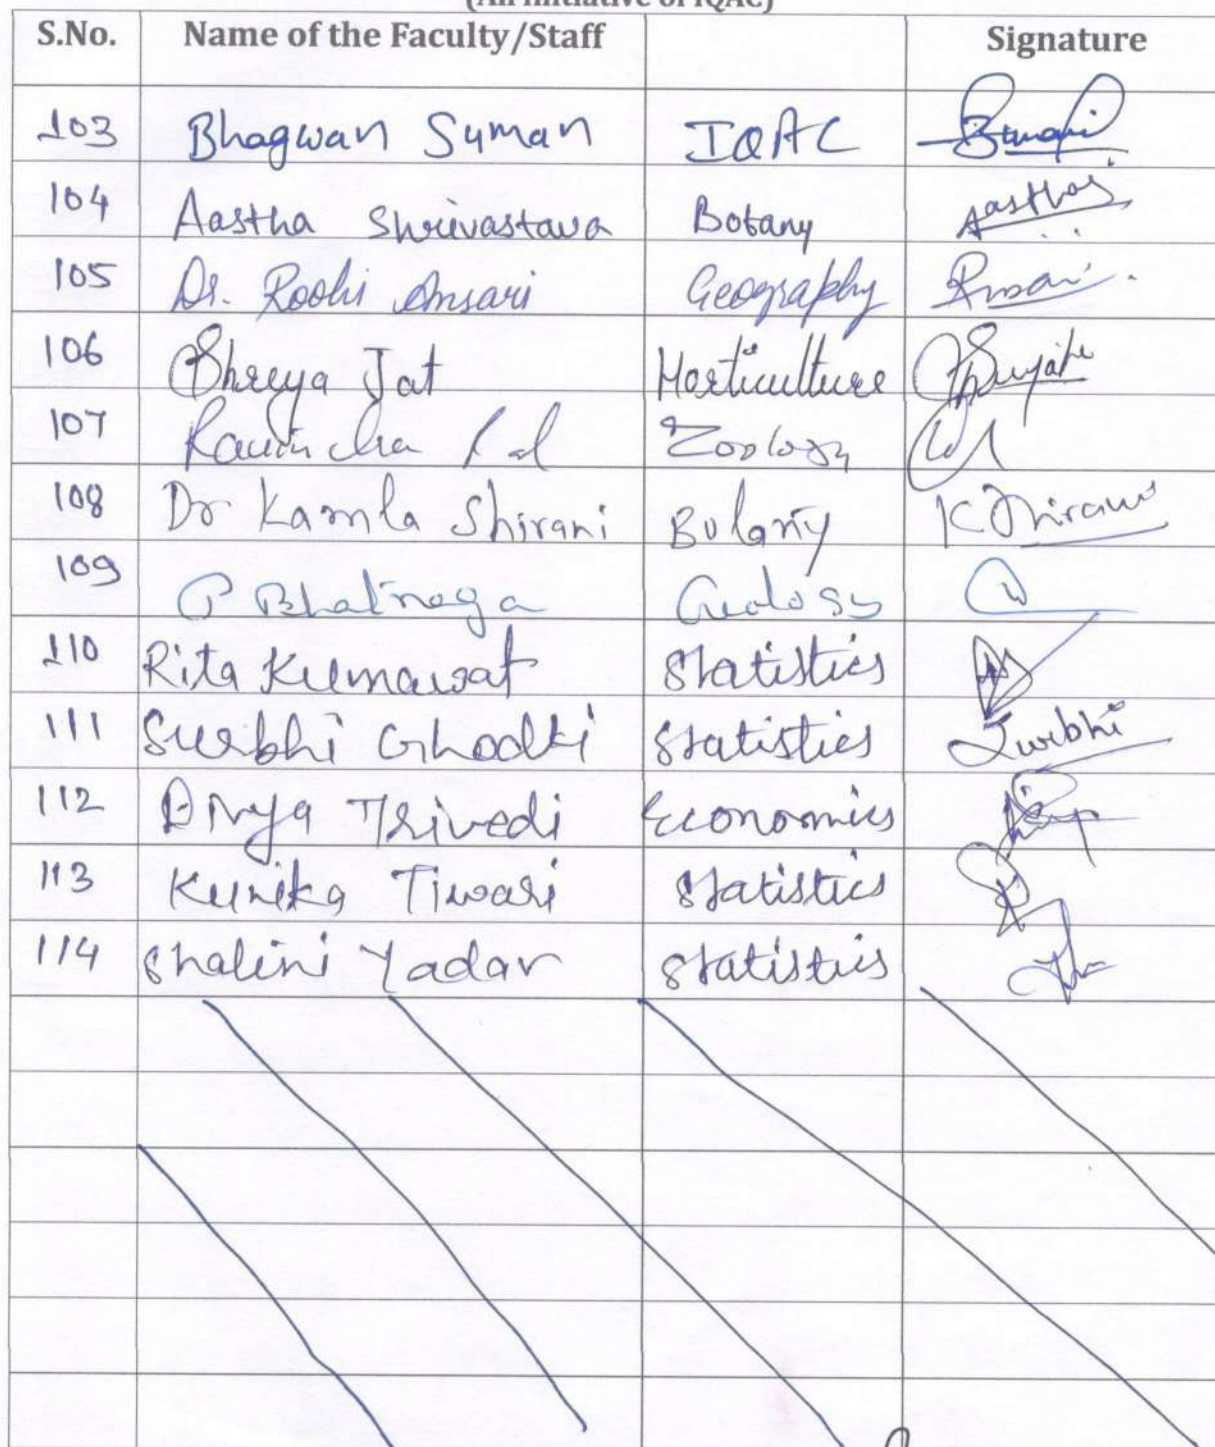 (An initiative of IQAC)
S.No. Name of the Faculty/Staff Signature
103 Bhagwan Suman IQAC
104 Aastha Shrivastava Botany Aastha
105 Dr. Roohi Ansari Geography
106 Shreya Jat Horticulture
107 Zoology
108 Dr Kamla Shirani Botany K Shirani
109 P Bhatnaga Geology
110 Rita Kumawat Statistics
111 Surbhi Ghodki Statistics Surbhi
112 Divya Trivedi Economics
113 Kunika Tiwari Statistics
114 Shalini Yadav Statistics